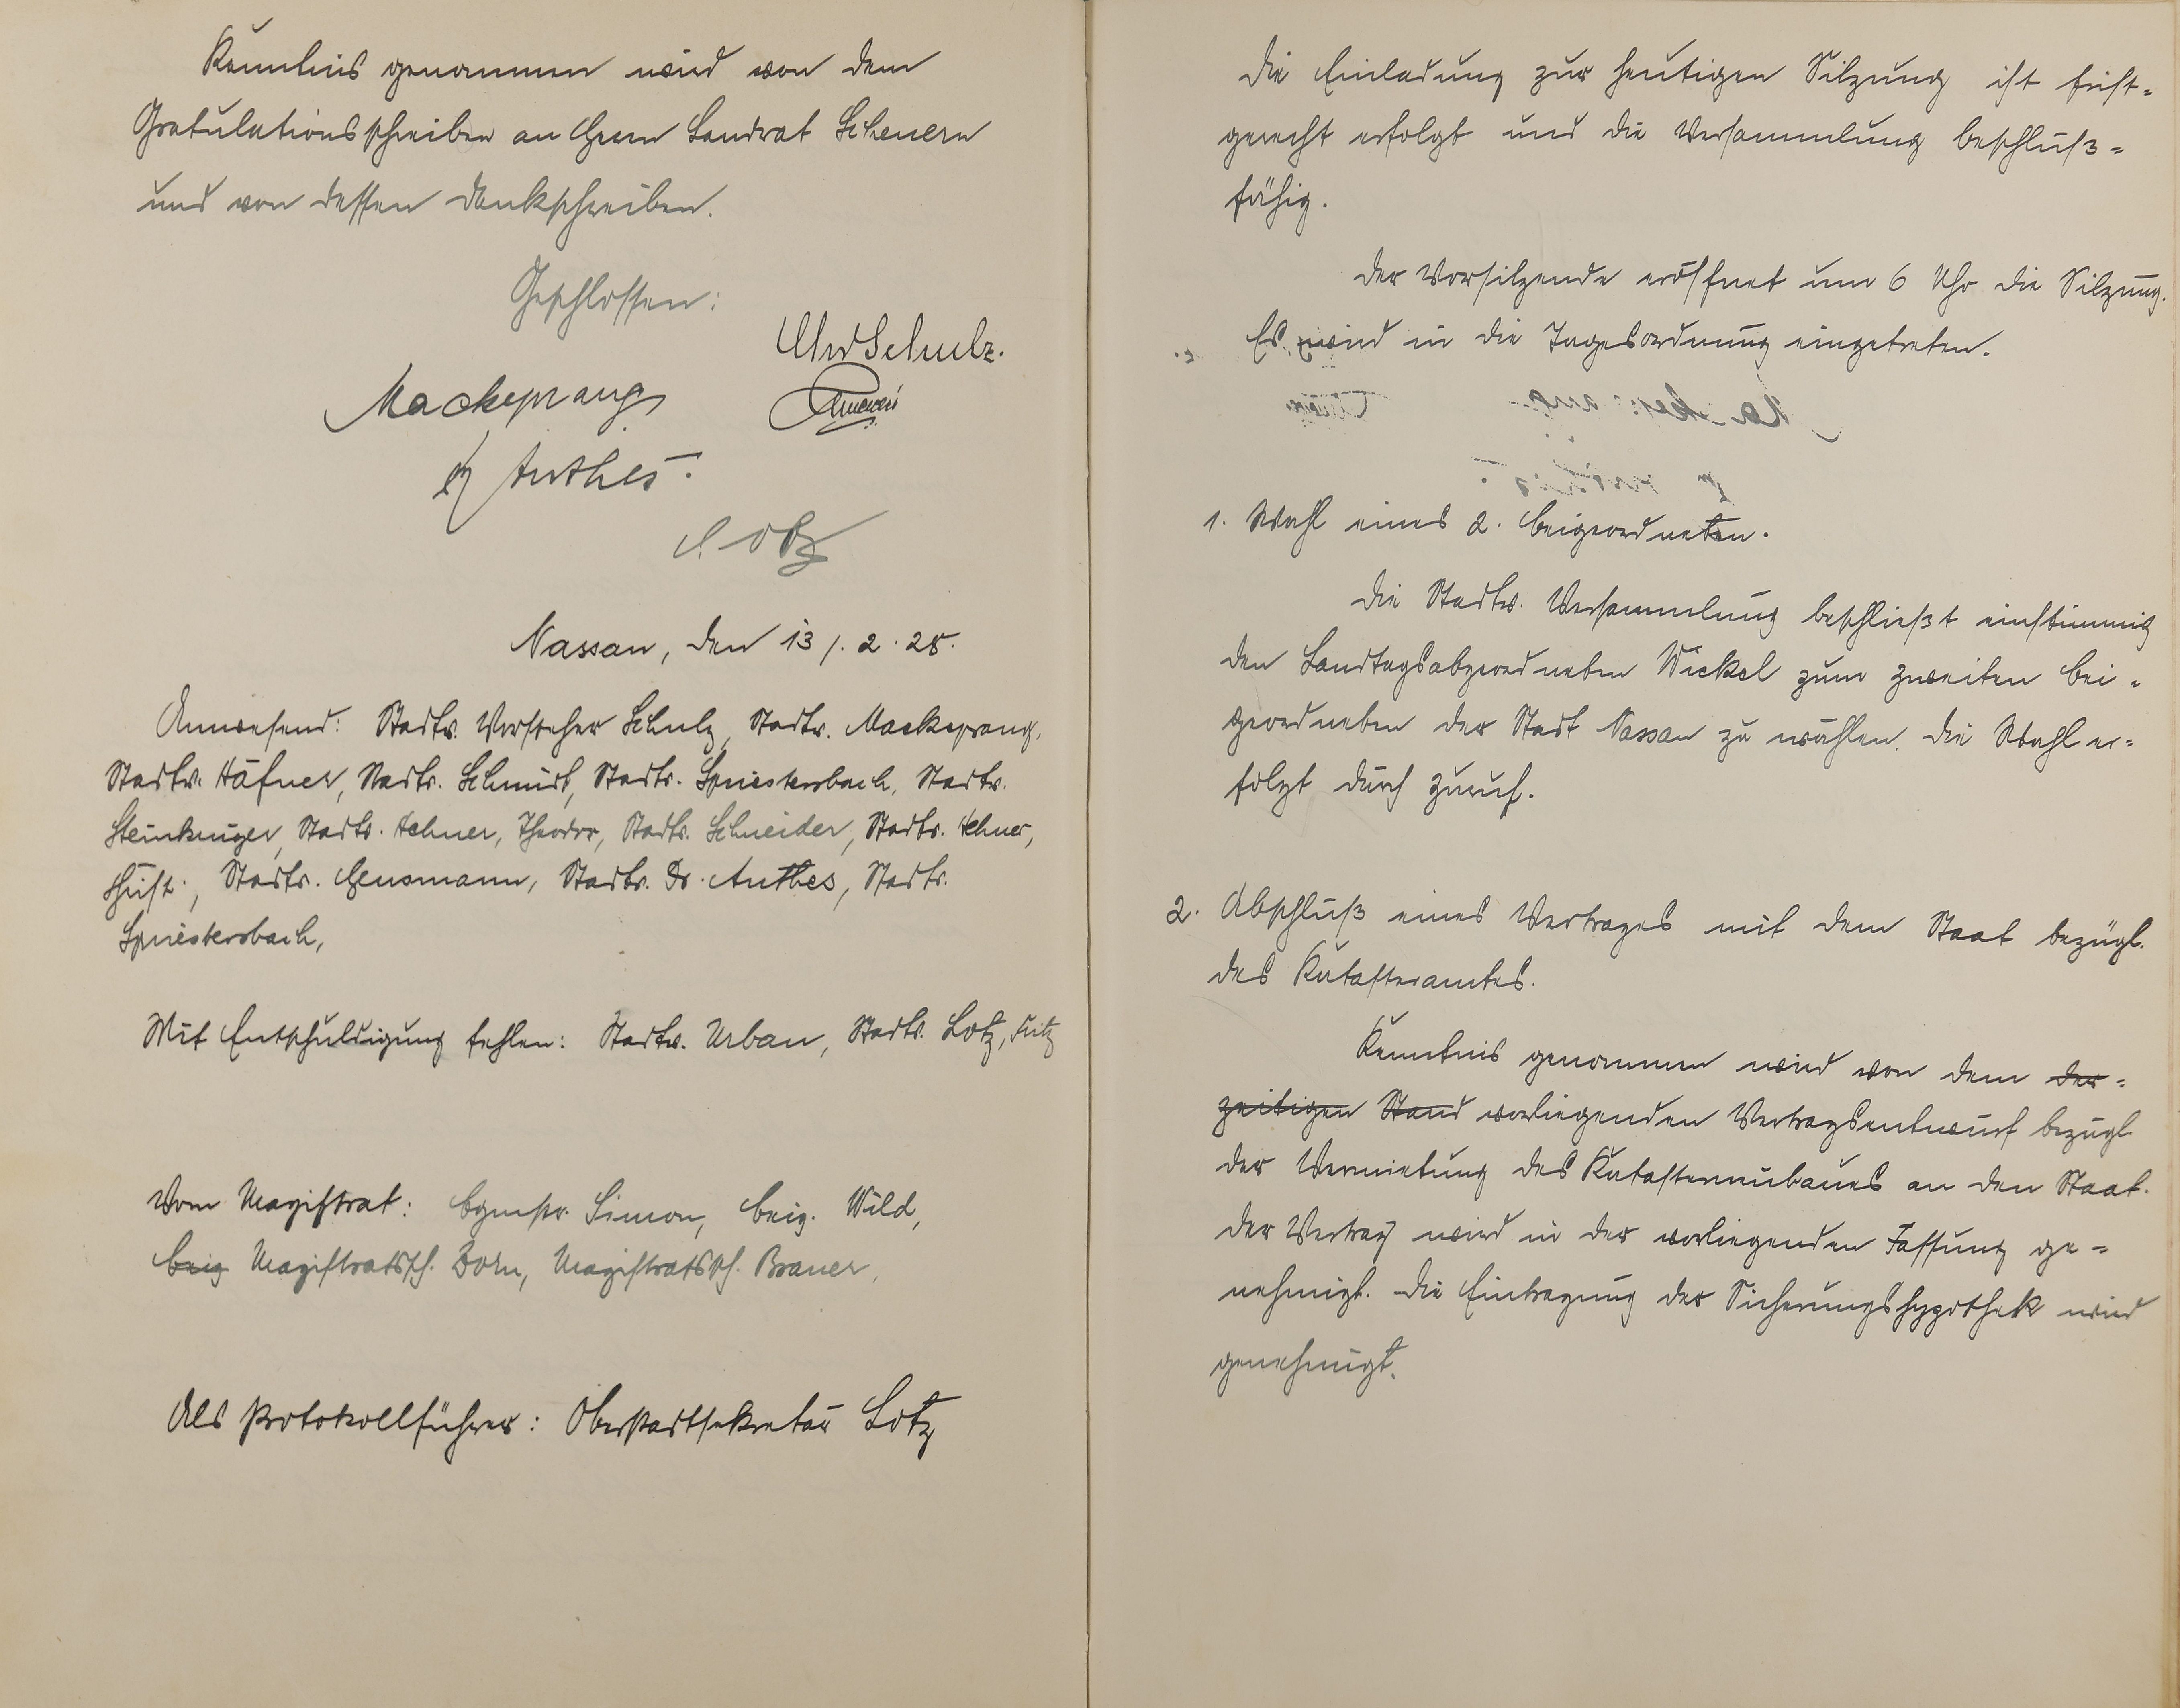 Kenntnis genommen wird von dem
Gratulationsschreiben an Herrn Landrat Scheuern
und von dessen Dankschreiben.
Geschlossen:
Schulz.
Mackeprang
Dr Anthes.
Lotz
Nassau, den 13/.2.28.
Anwesend: Stadtv. Vorsteher Schulz, Stadtv. Mackeprang,
Stadtv. Häfner, Stadtv. Schmidt, Stadtv. Spriestersbach, Stadtv.
Steinkrüger, Stadtv. Achner, Theodor, Stadtv. Schneider, Stadtv. Achner,
Christ., Stadtv. Hensmann, Stadtv. Dr. Anthes, Stadtv.
Spriestersbach,
Mit Entschuldigung fehlen: Stadtv. Urban, Stadtv. Lotz, Fritz
Vom Magistrat: Bgmstr. Simon, Beig. Wild,
Beig Magistratssch. Born, Magistratssch. Brauer,
Als Protokollführer: Oberstadtsekretär Lotz
Die Einladung zur heutigen Sitzung ist frist-
gerecht erfolgt und die Versammlung beschluß-
fähig.
Der Vorsitzende eröffnet um 6 Uhr die Sitzung.
Es wird in die Tagesordnung eingetreten.
1. Wahl eines 2. Beigeordneten.
Die Stadtv. Versammlung beschließt einstimmig
den Landtagsabgeordneten Wickel zum zweiten Bei-
geordneten der Stadt Nassau zu wählen. Die Wahl er-
folgt durch Zuruf.
2. Abschluß eines Vertrages mit dem Staat bezügl.
des Katasteramtes.
Kenntnis genommen wird von dem der-
zeitigen Stand vorliegenden Vertragsentwurf bezügl.
der Vermietung des Katasterneubaues an den Staat.
Der Vertrag wird in der vorliegenden Fassung ge-
nehmigt. Die Eintragung der Sicherungshypothek wird
genehmigt.